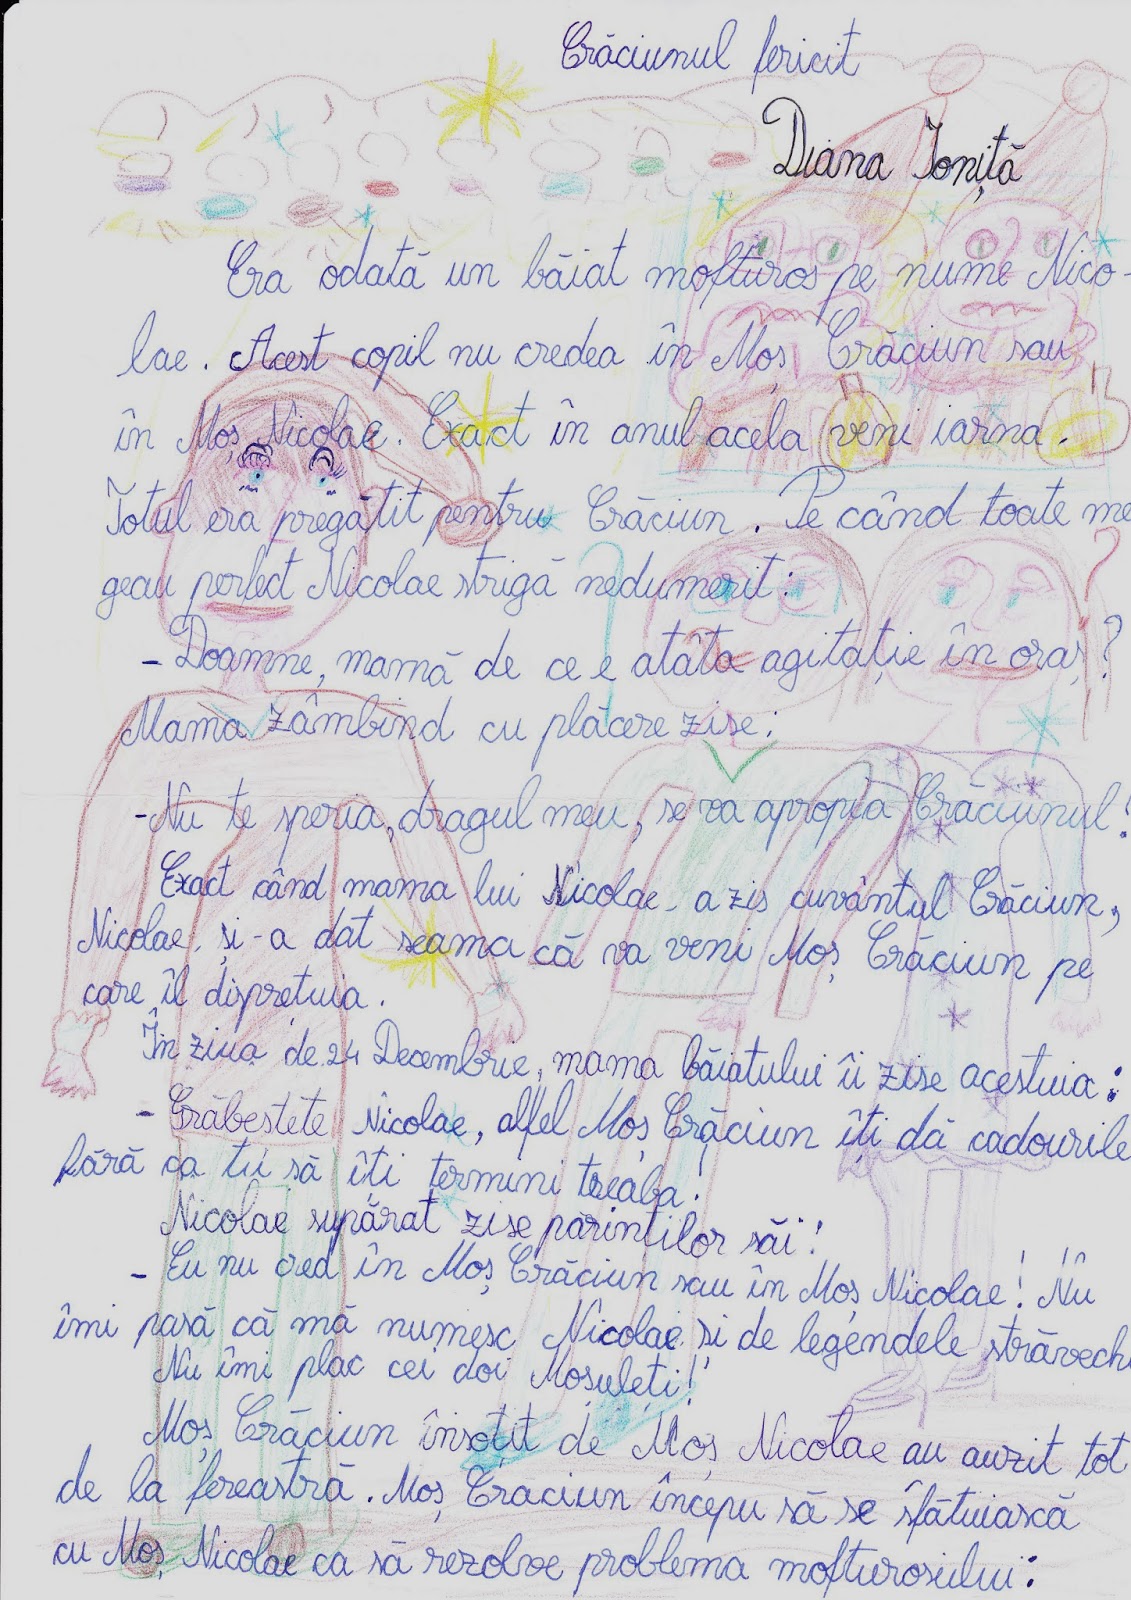 Crăciunul fericit
Diana Ioniță
Era odată un băiat mofturos pe nume Nico-
lae. Acest copil nu credea în Moș Crăciun sau
în Moș Nicolae. Exact în anul acela veni iarna.
Totul era pregătit pentru Crăciun. Pe când toate me
geau perfect Nicolae strigă nedumerit:
- Doamne, mamă de ce e atâta agitație în oraș?
Mama zâmbind cu plăcere zise:
-Nu te speria, dragul meu, se va apropia Crăciunul!
Exact când mama lui Nicolae a zis cuvântul Crăciun,
Nicolae și-a dat seama că va veni Moș Crăciun pe
care îl disprețuia.
În ziua de 24 Decembrie, mama băiatului îi zise acestuia:
- Grăbestete Nicolae, alfel Moș Crăciun îți dă cadourile
fără ca tu să îți termini treaba!
Nicolae supărat zise părintilor săi!
- Eu nu cred în Moș Crăciun sau în Moș Nicolae! Nu
îmi pasă că mă numesc Nicolae și de legendele străvechi
Nu îmi plac cei doi Moșuleți!
Moș Crăciun însoțit de Moș Nicolae au auzit tot
de la fereastră. Moș Crăciun începu să se sfătuiască
cu Moș Nicolae ca să rezolve problema mofturosului: